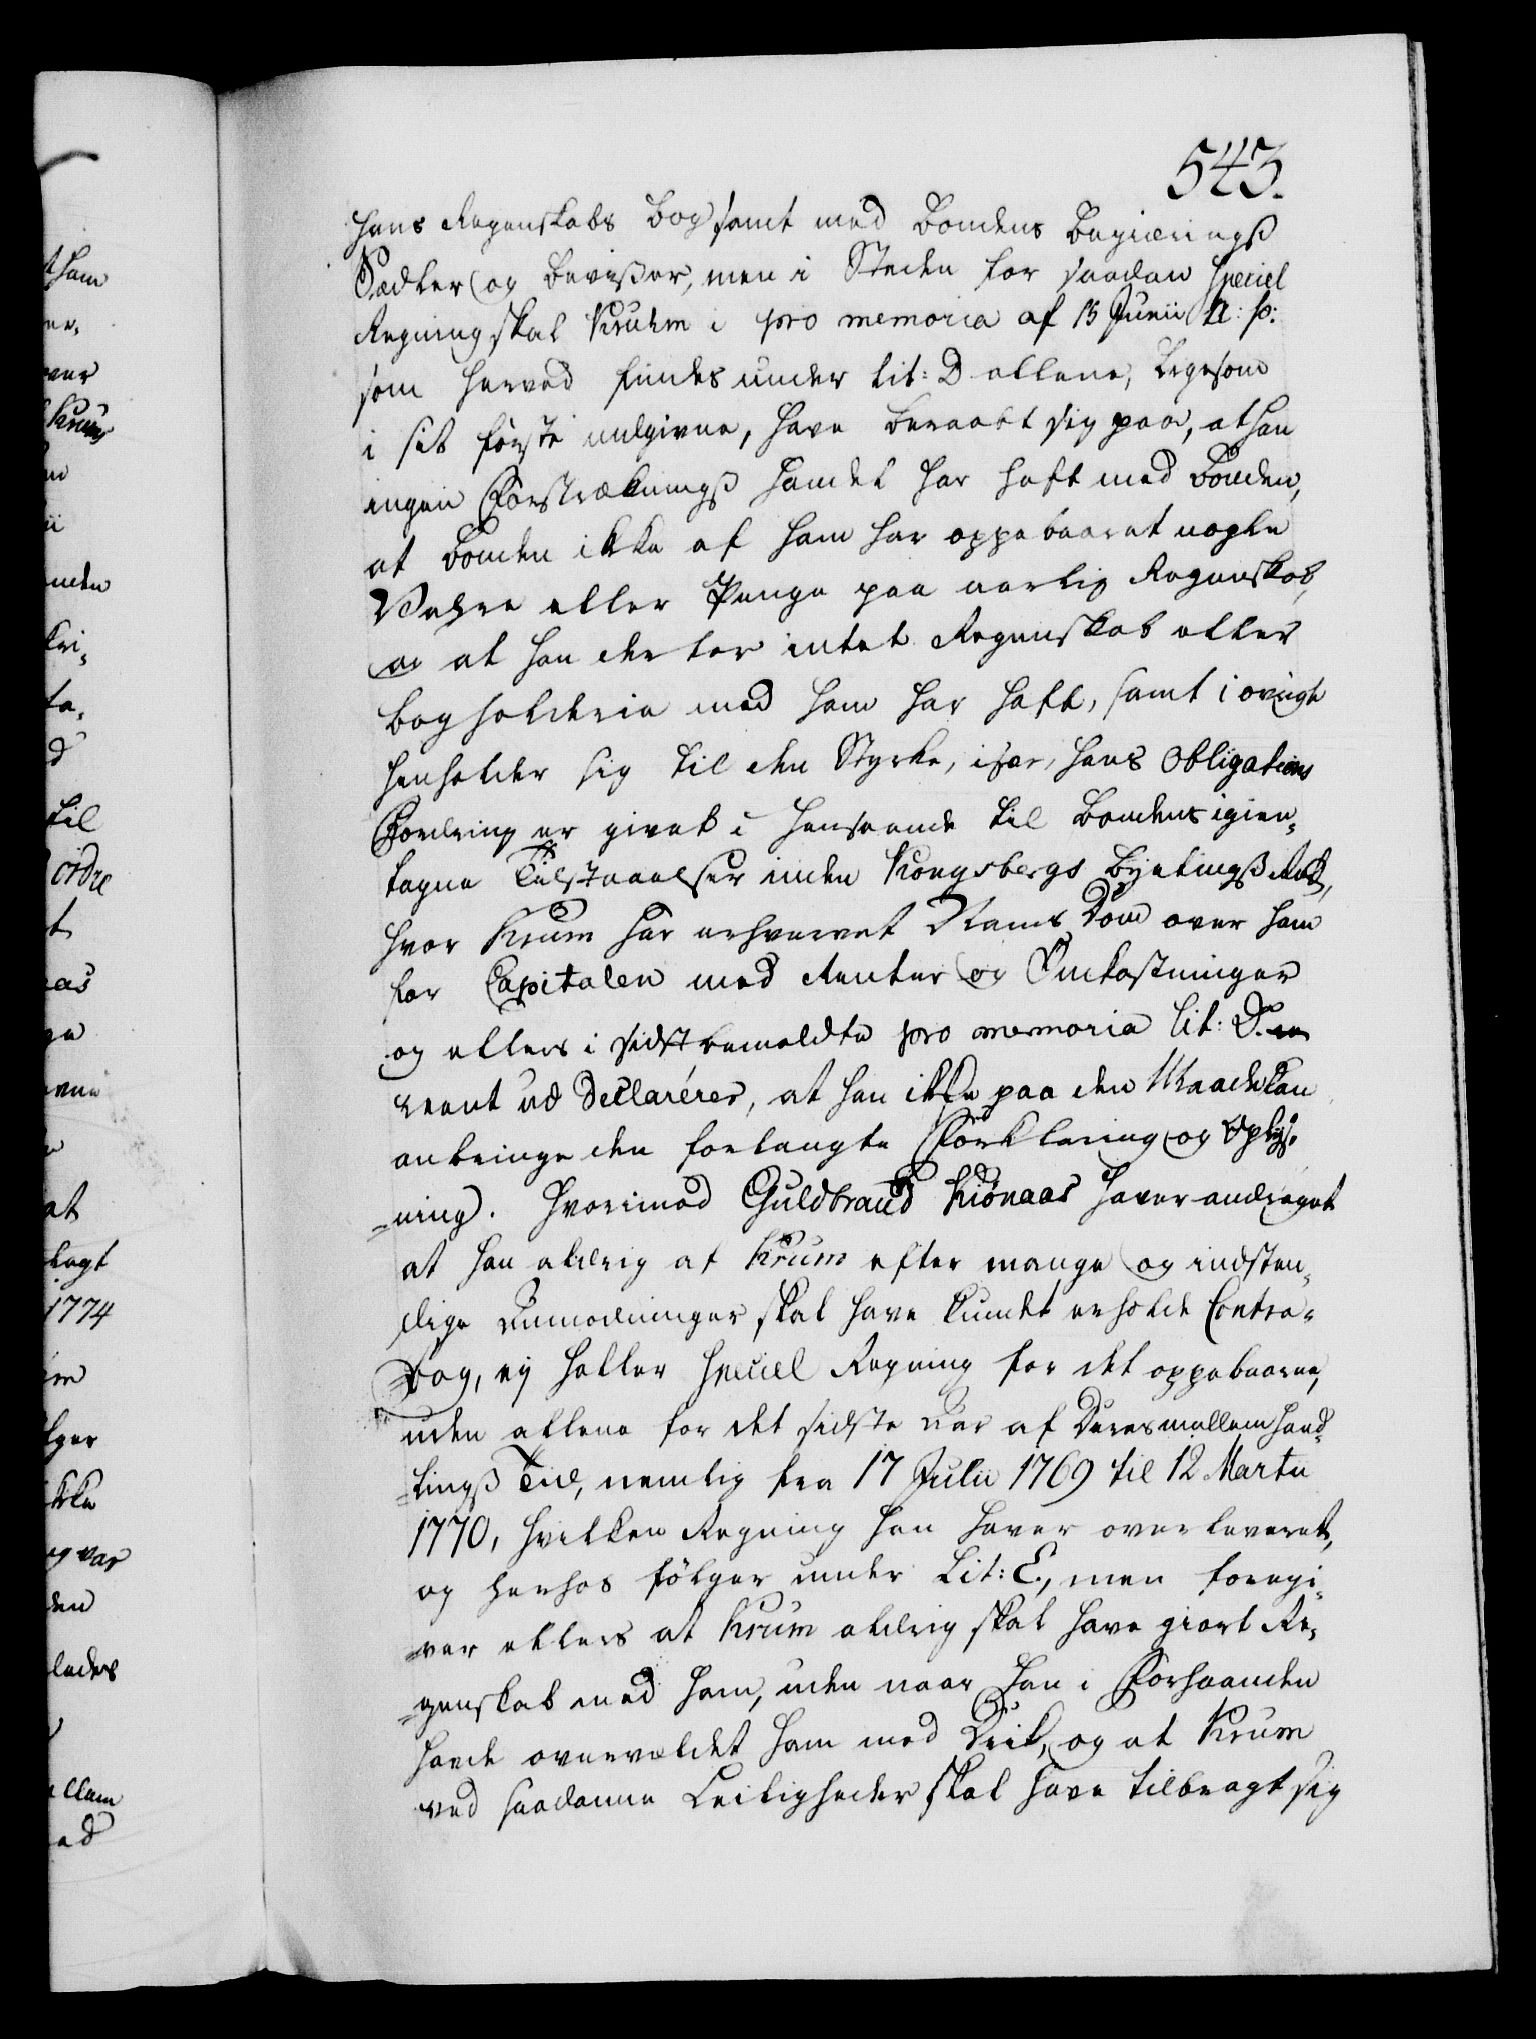 543.
hans Regenskabs bog samt med Bondens Begiærings
Sedler og beviser, men i Steden for saadan Speciel
Regning skal Kruhm i pro memoria af 15 Junii A: p:
som herved findes under lit: D allene, ligesom
i sit første udgivne, have beraabt sig paa, at han
ingen Forstræknings Handel har haft med Bonden,
at Bonden ikke af ham har oppebaaret nogle
Vahre eller Penge paa aarlig Regenskab,
og at han derfor intet Regenskab eller
bogholderie med ham har haft, samt i øvrigt
henholder sig til den Styrke, især, hans Obligations
Fordring er givet i henseende til Bondens igien-
tagne Tilstaaelser inden Kongsbergs Bytings Ret,
hvor Krum har erhvervet Nams Dom over ham
for Capitalen med Renter og Omkostninger
og ellers i sidstbemeldte pro memoria lit: D.
reent ud Declarérer, at han ikke paa den Maade kan
anbringe den forlangte Forklaring og Oplys-
ning. Hvorimod Guldbrand Kiønaas haver andraget
at han aldrig af Krum efter mange og indsten-
dige Anmodninger skal have kundet erholde Contra-
Bog, ej heller Speciel Regning for det oppebaarne,
uden allene for det sidste Aar af Deres mellem hand-
lings Tid, nemlig fra 17 Julii 1769 til 12 Martii
1770, hvilken Regning han haver overleveret,
og herhos følger under Lit: E., men foregi-
ver ellers at Krum aldrig skal have giort Re-
genskab med ham, uden naar han i Forhaanden
havde overvældet ham med Drik, og at Krum
ved saadanne Leiligheder skal have tilbragt sig